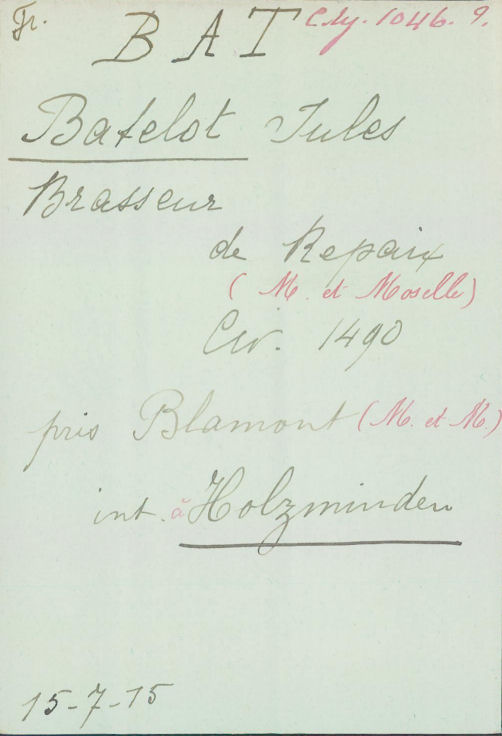 Fr. BAT C.ly. 1046. 9.
Batelot Jules
Brasseur
de Repaix
( M. et Moselle)
Civ. 1490
pris Blamont (M. et M.)
int. à Holzminden
15-7-15